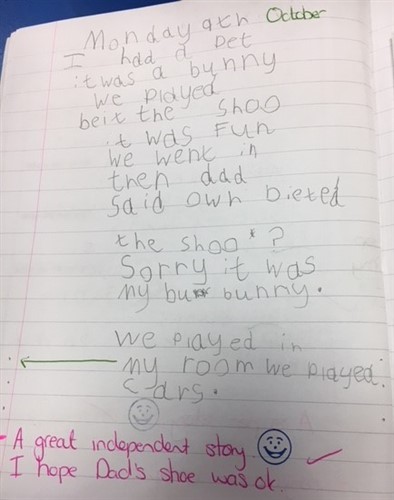 Monday 9th October
I had a pet
it was a bunny
we played
beit the shoo
it was Fun
we went in
then dad
said own bieted
the shoo * ?
Sorry it was
my bunny.
we played in
my room we played.
cars.
A great independent story.
I hope Dad's shoe was ok.